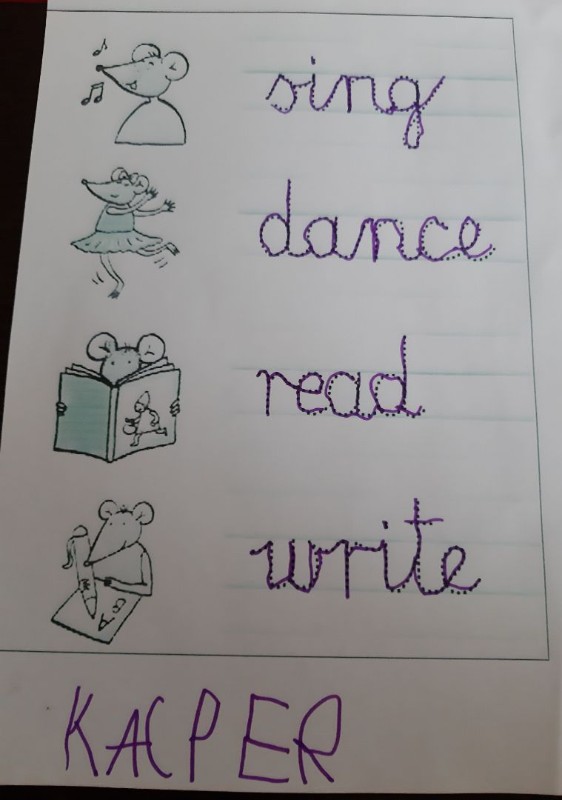 sing
dance
read
write
KACPER